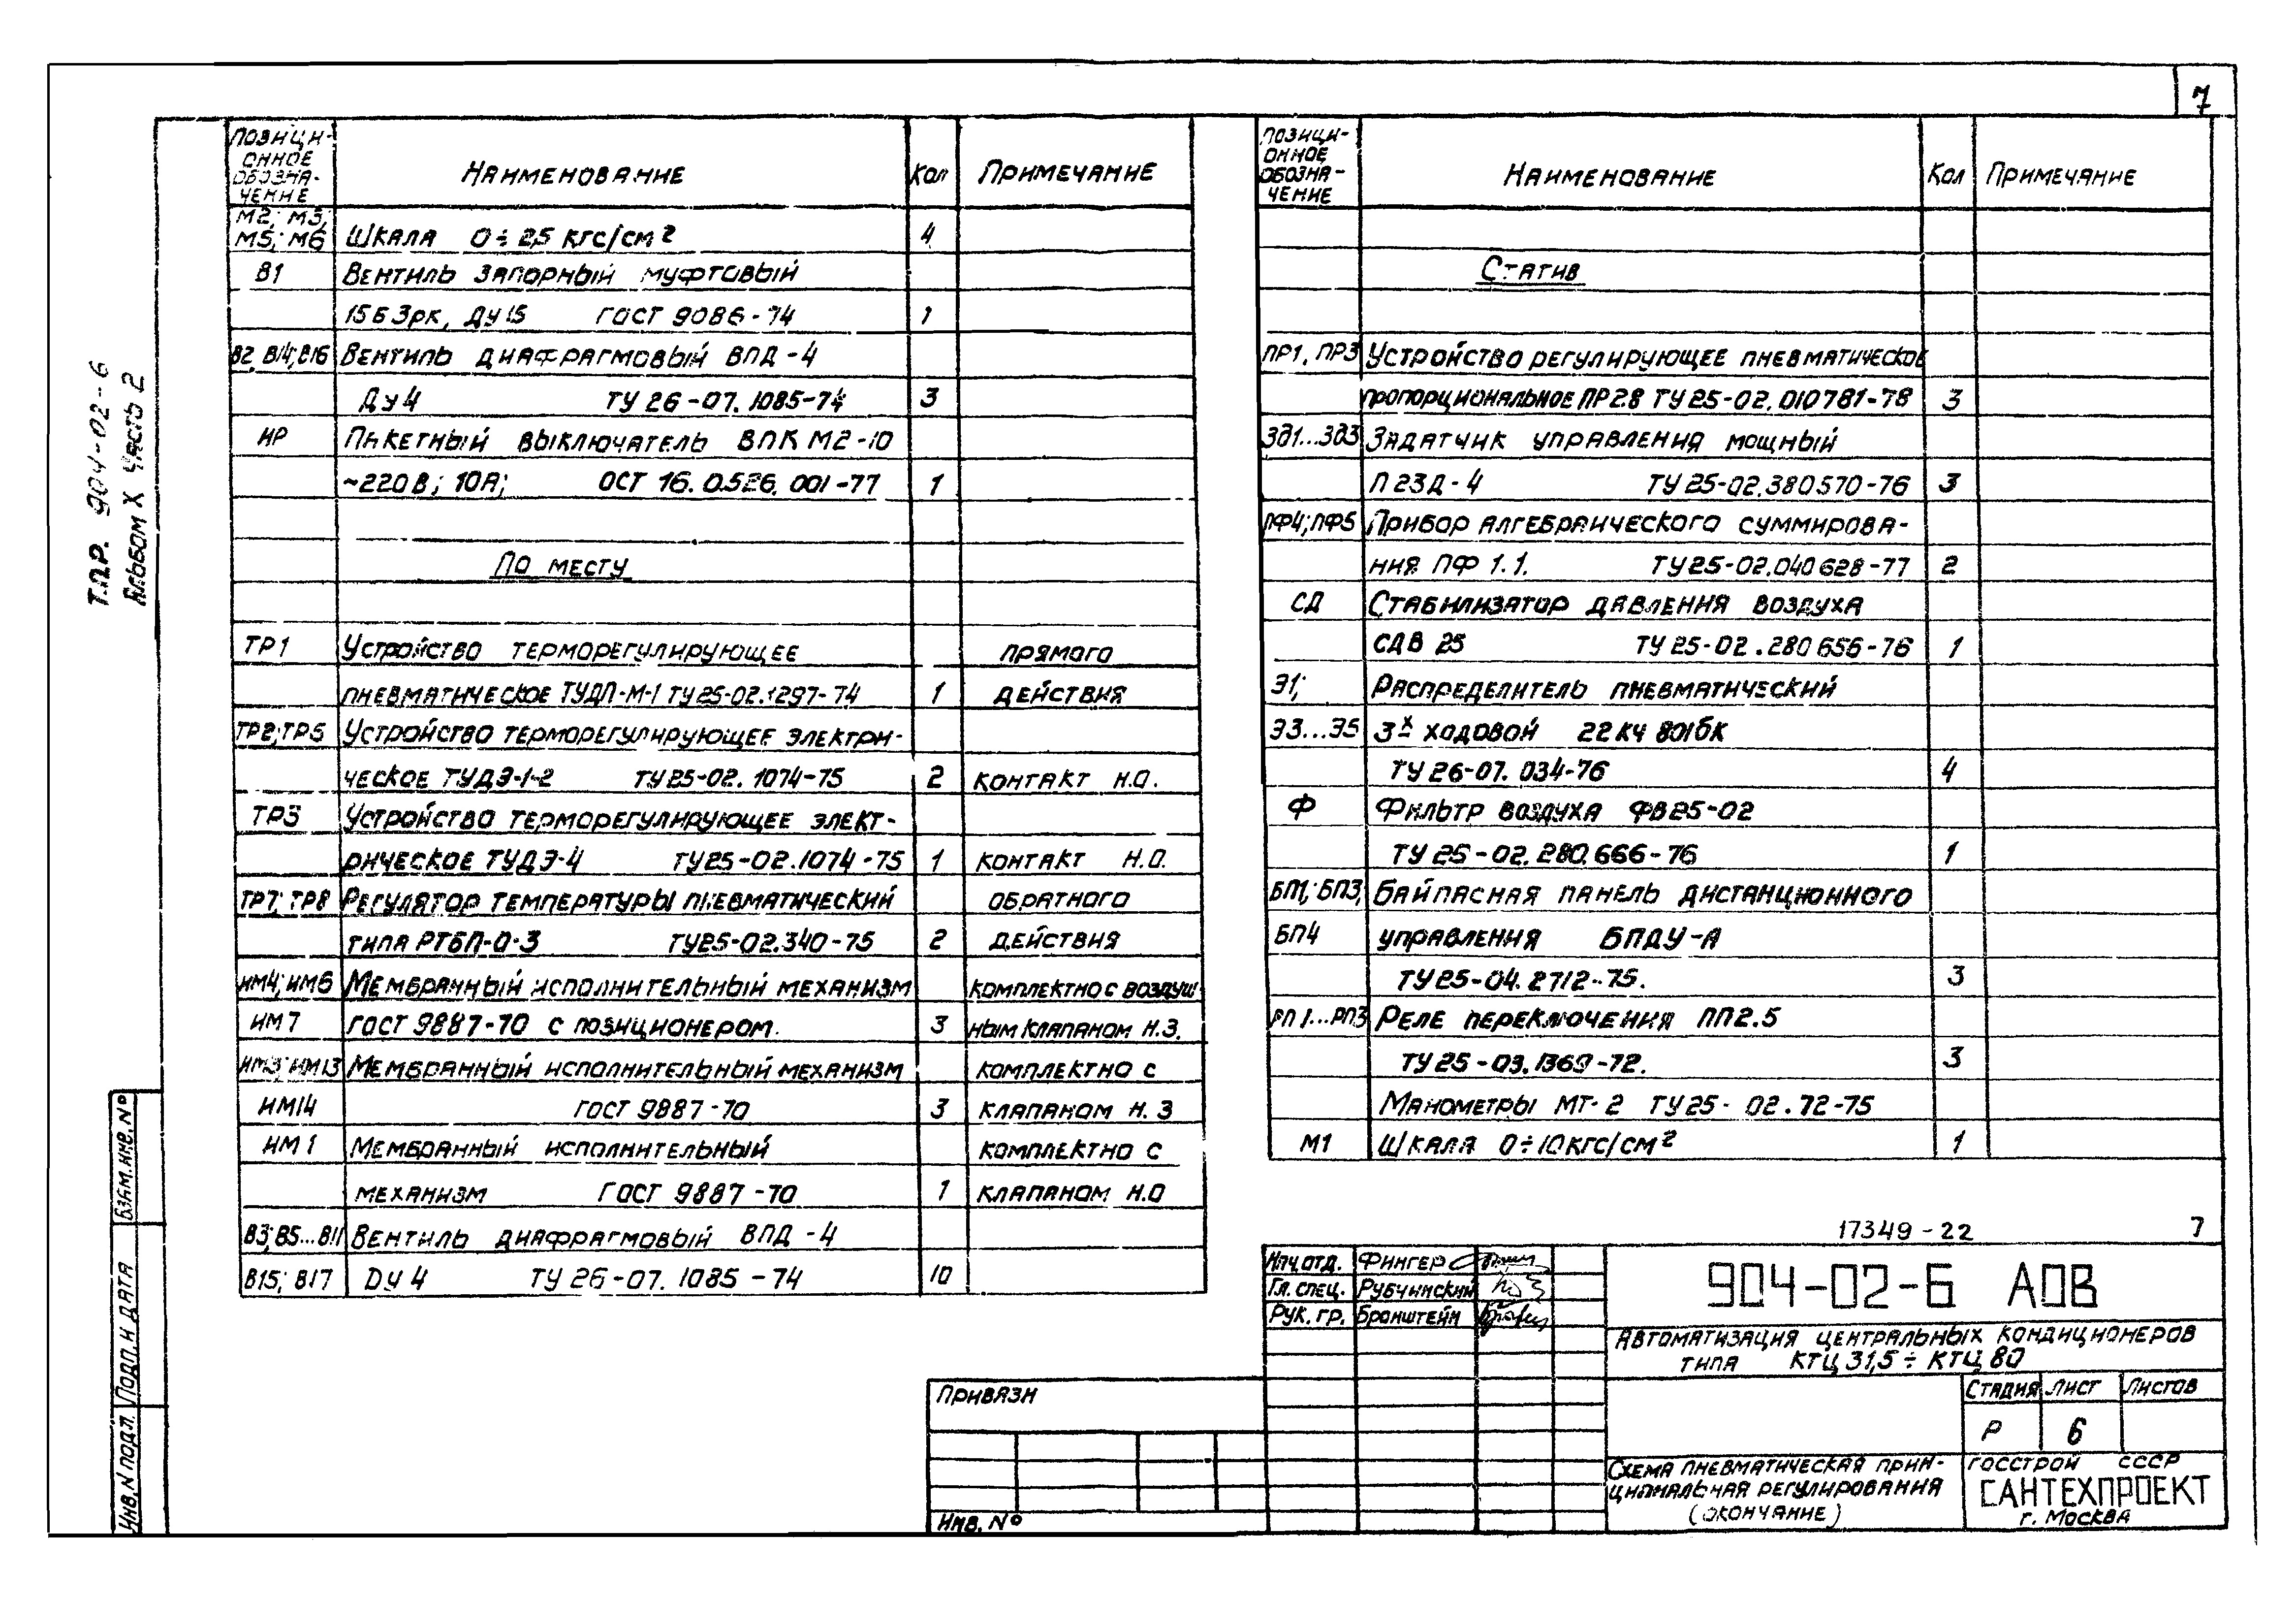 7
Т.П.Р. 904-02-6
Альбом X часть 2
Позици-
онное
обозна-
чение
Наименование
Кол
Примечание
М2; М3;
М5; М6 Шкала 0÷2,5 кгс/см² 4
В1 Вентиль запорный муфтовый
15Б3рк, Ду15 ГОСТ 9086-74 1
В2, В14; В16 Вентиль диафрагмовый ВПД-4
Ду4 ТУ 26-07. 1085-74 3
ИР Пакетный выключатель ВПК М2-10
~220В; 10А; ОСТ 16. 0.526. 001-77 1
По месту
ТР1 Устройство терморегулирующее прямого
пневматическое ТУДП-М-1 ТУ25-02.1297-74 1 действия
ТР2; ТР5 Устройство терморегулирующее электри-
ческое ТУДЭ-1-2 ТУ25-02. 1074-75 2 контакт Н.О.
ТР3 Устройство терморегулирующее элект-
рическое ТУДЭ-4 ТУ25-02.1074-75 1 контакт Н.О.
ТР7; ТР8 Регулятор температуры пневматический обратного
типа РТБП-О-3 ТУ25-02.340-75 2 действия
ИМ4; ИМ6 Мембранный исполнительный механизм комплектно с воздуш
ИМ7 ГОСТ 9887-70 с позиционером. 3 ным клапаном Н.З.
ИМ3; ИМ13 Мембранный исполнительный механизм комплектно с
ИМ14 ГОСТ 9887-70 3 клапаном Н.З
ИМ1 Мембранный исполнительный комплектно с
механизм ГОСТ 9887-70 1 клапаном Н.О
В3; В5...В11 Вентиль диафрагмовый ВПД-4
В15; В17 Ду 4 ТУ 26-07. 1085-74 10
Позици-
онное
обозна-
чение
Наименование
Кол
Примечание
Статив
ПР1, ПР3 Устройство регулирующее пневматическое
пропорциональное ПР2.8 ТУ25-02.010781-78 3
Зд1...Зд3 Задатчик управления мощный
П23Д-4 ТУ25-02.380570-76 3
ПФ4; ПФ5 Прибор алгебраического суммирова-
ния ПФ 1.1. ТУ25-02.040628-77 2
СД Стабилизатор давления воздуха
СДВ 25 ТУ 25-02.280656-76 1
Э1; Распределитель пневматический
Э3...Э5 3х ходовой 22кч 801бк
ТУ 26-07. 034-76 4
Ф Фильтр воздуха ФВ25-02
ТУ 25-02.280.666-76 1
БП1; БП3; Байпасная панель дистанционного
БП4 управления БПДУ-А
ТУ25-04.2712-75. 3
РП1...РП3 Реле переключения ПП2.5
ТУ25-03.1369-72. 3
Манометры МТ-2 ТУ25-02.72-75
М1 Шкала 0÷10кгс/см² 1
17349-22 7
Нач.отд. Фингер
Гл. спец. Рубчинский
Рук. гр. Бронштейн
904-02-6 АОВ
Автоматизация центральных кондиционеров
типа КТЦ 31,5÷КТЦ 80
Стадия Лист Листов
Р 6
Схема пневматическая прин-
ципиальная регулирования
(окончание)
Госстрой СССР
САНТЕХПРОЕКТ
г. Москва
Привязн
Инв. №
Взам.инв.№
Подп. и дата
Инв.N подл.